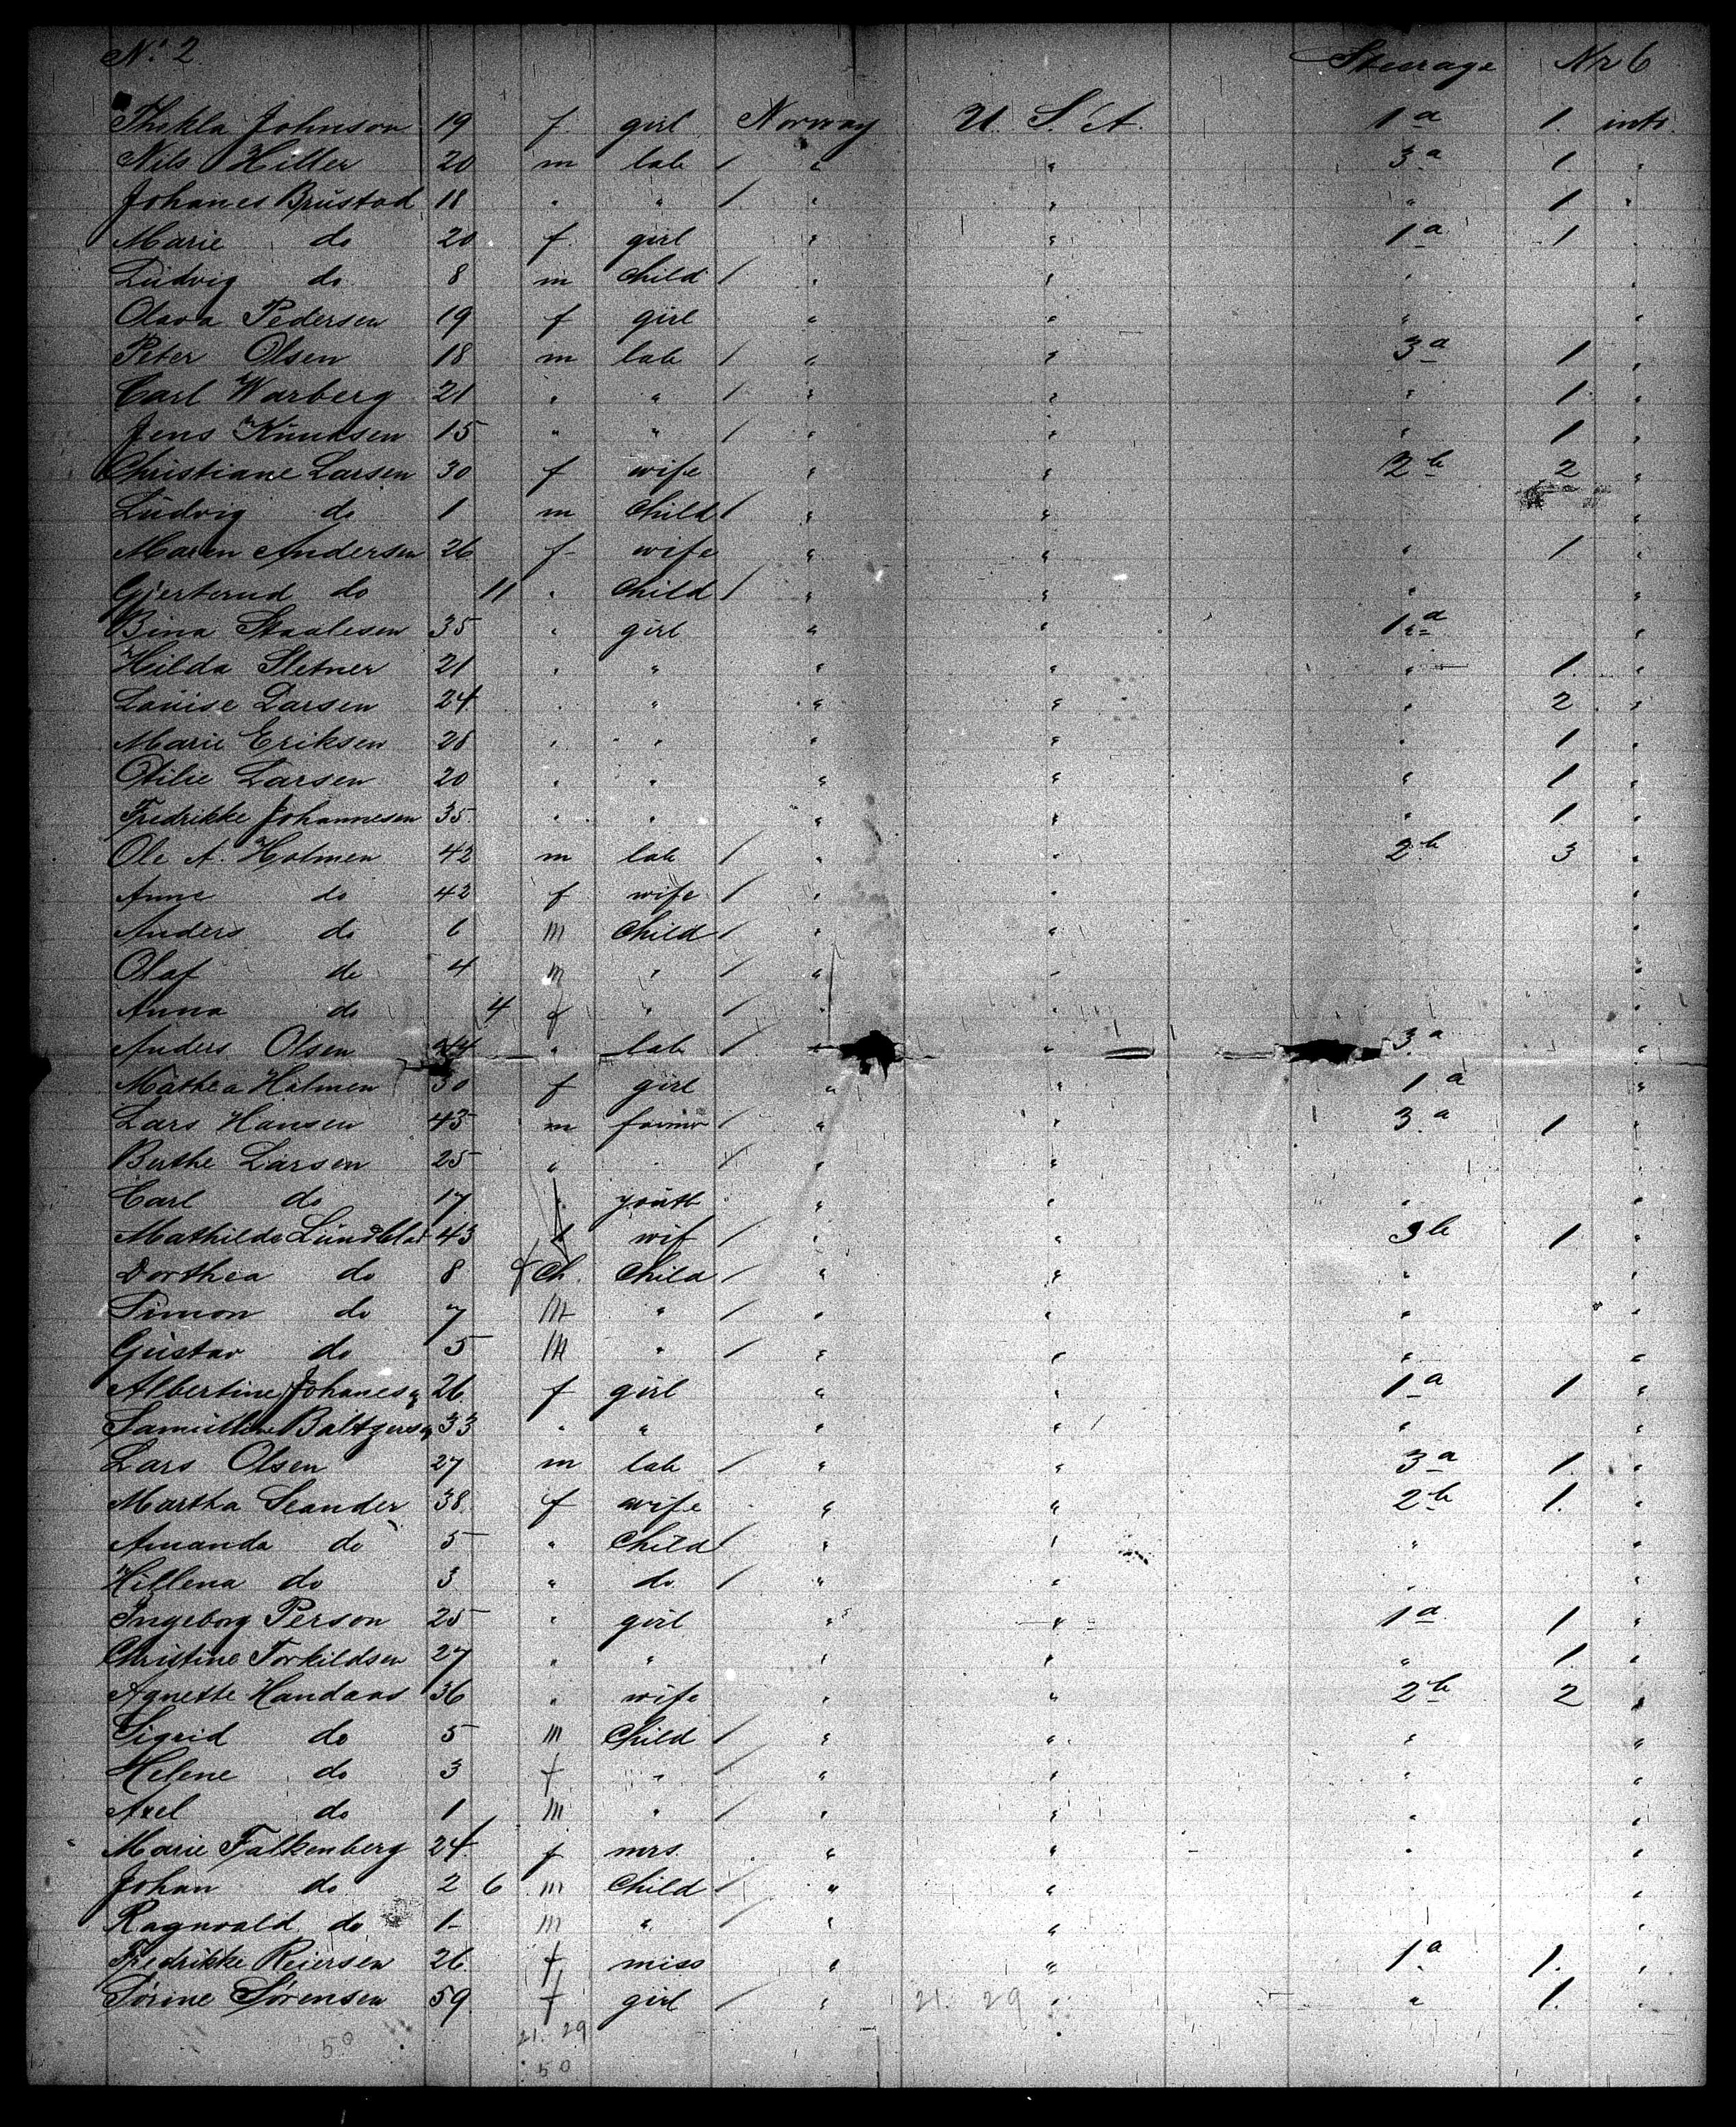 No. 2. Steerage Nr 6
Thekla Johnson 19 f girl Norway U. S. A. 1a 1. into.
Nils Hiller 20 m lab / " " 3a 1. "
Johanes Brustad 18 " " / " " " 1 "
Marie do 20 f girl " " 1a 1
Ludvig do 8 m Child / " " " "
Olava Pedersen 19 f girl " " " "
Peter Olsen 18 m lab / " " 3a 1 "
Carl Warberg 21 " " / " " " 1 "
Jens Knudsen 15 " " / " " " 1 "
Christiane Larsen 30 f wife " " 2b 2 "
Ludvig do 1 m Child / " " "
Maren Andersen 26 f wife " " " 1 "
Gjerterud do 11 " Child / " " " "
Bina Staalesen 35 " girl " " 1a "
Hilda Sletner 21 " " " " " 1. "
Louise Larsen 24 " " " " " 2 "
Marie Eriksen 28 " " " " " 1 "
Otilie Larsen 20 " " " " " 1 "
Fredrikke Johannesen 35 " " " " " 1. "
Ole A. Holmen 42 m lab / " " 2b 3 "
Anne do 42 f wife / " " "
Anders do 6 m Child / " " "
Olaf do 4 m " / " " "
Anna do 4 f " / " " "
Anders Olsen " lab / " " 3a "
Mathea Holmen 30 f girl " " 1a "
Lars Hansen 43 m farmer / " " 3a 1 "
Berthe Larsen 25 " " / " " " "
Carl do 17 " youth " " " "
Mathilde Lundblad 43 f wif / " " 3b 1 "
Dorthea do 8 f Ch. Child / " " " "
Simon do 7 m " / " " " "
Gustav do 5 m " / " " " "
Albertine Johanes 26 f girl " " 1a 1 "
33 " " " " " "
Lars Olsen 27 m lab / " " 3a 1. "
Martha Leander 38 f wife " " 2b 1. "
Amanda do 5 " Child / " " " "
Hillena do 3 " do / " " " "
Ingeborg Person 25 " girl " " 1a 1 "
Christine Torkildsen 27 " " " " " 1. "
Agnette Handaas 36 " wife " " 2b 2 "
Sigrid do 5 m Child / " " " "
Helene do 3 f " / " " " "
Axel do 1 m " / " " " "
Marie Falkenberg 24 f mrs. " " " "
Johan do 2 6 m Child / " " " "
Ragnvald do 1 m " / " " "
Fredrikke Reiersen 26 f miss " " 1a 1. "
Sørine Sørensen 59 f girl / " 21 29 " " 1. "
50 21 29
50